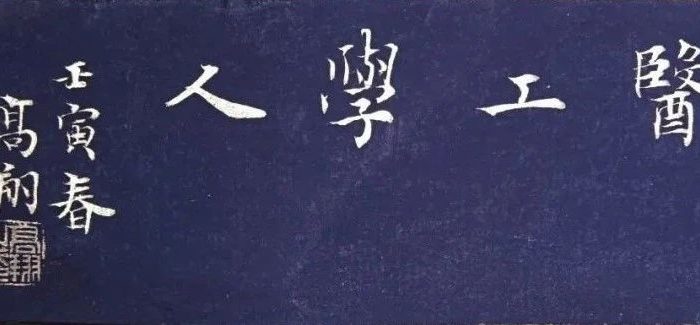 醫工學人
壬寅春
高翔